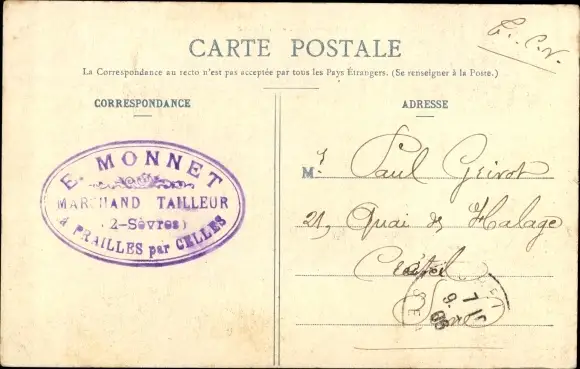 T. C. V.
CARTE POSTALE
La Correspondance au recto n'est pas acceptée par tous les Pays Étrangers. (Se renseigner à la Poste.)
CORRESPONDANCE
E. MONNET
MARCHAND TAILLEUR
(2-Sèvres)
à PRAILLES par CELLES
ADRESSE
M. r Paul Geivot
21, Quai de Halage
Creteil
7 / 15
9. 06